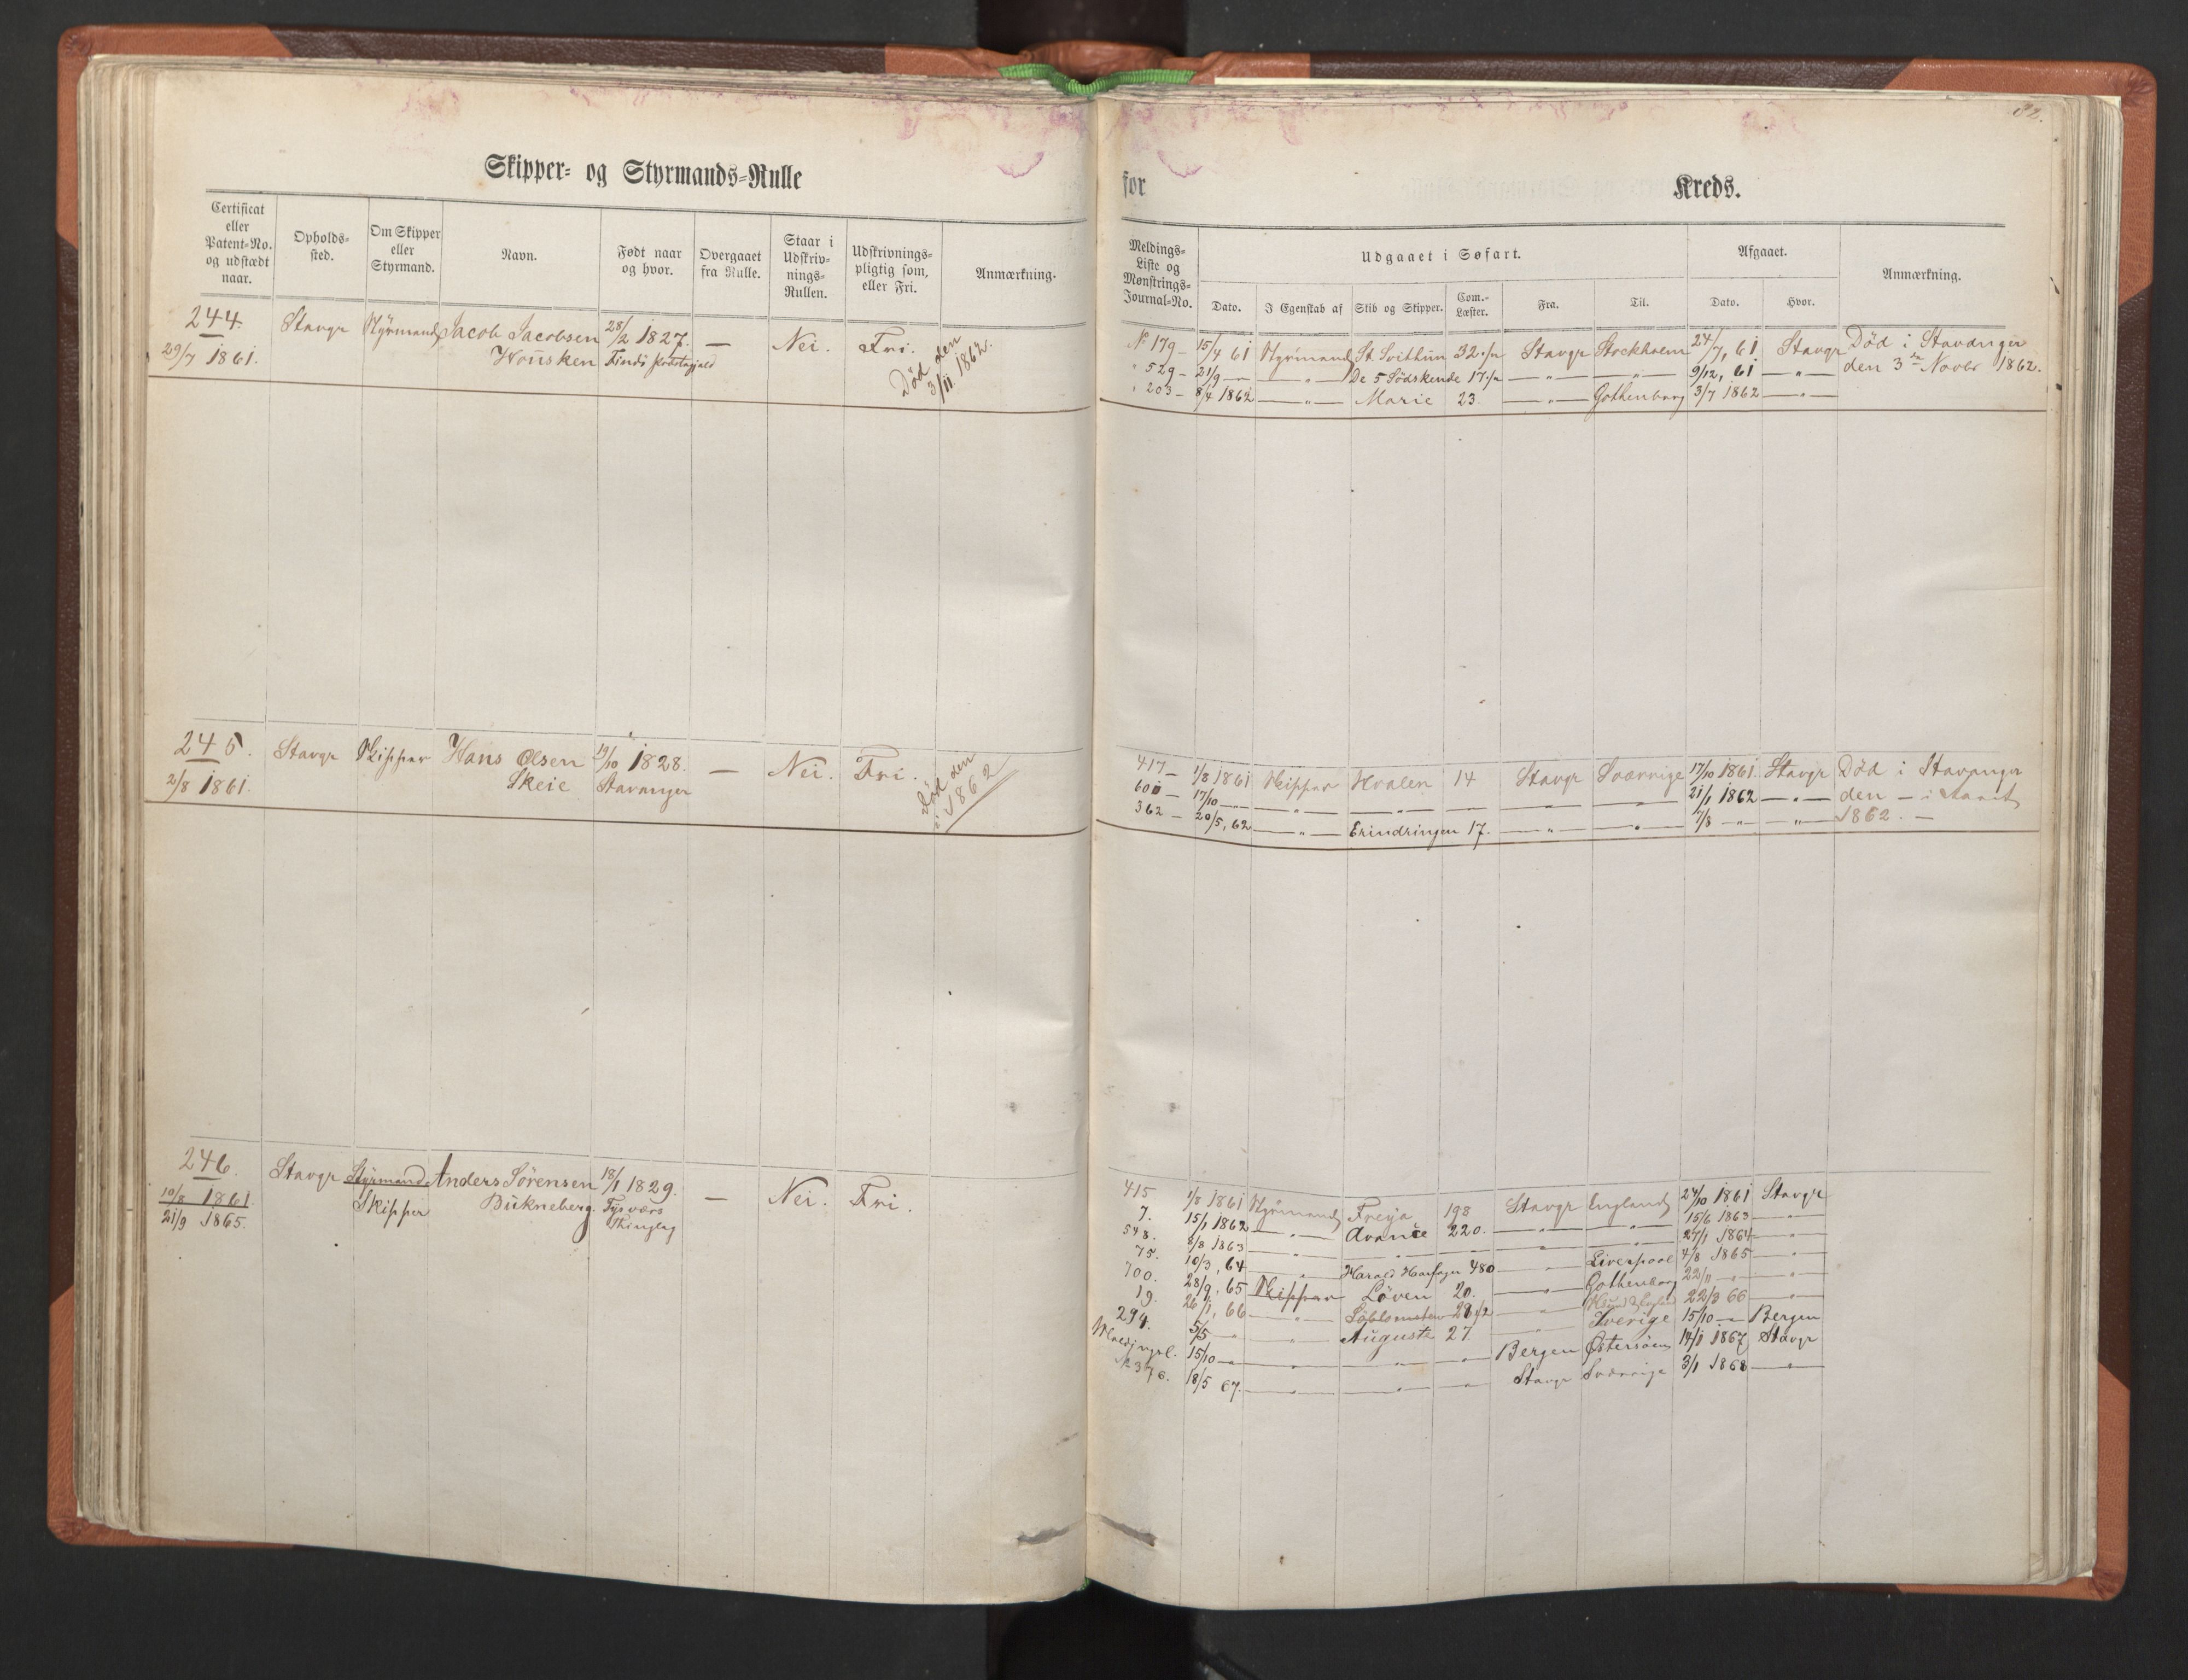 32.
Skipper- og Styrmands-Rulle
for Kreds.
Certificat eller Patent-No. og udstædt naar.
Opholds-sted.
Om Skipper eller Styrmand.
Navn.
Født naar og hvor.
Overgaaet fra Rulle.
Staar i Udskriv-nings-Rullen.
Udskrivnings-pligtig som, eller Fri.
Anmærkning.
Meldings-Liste og Mønstrings-Journal-No.
Udgaaet i Søfart.
Dato.
I Egenskab af
Skib og Skipper.
Com.-Læster.
Fra.
Til.
Afgaaet.
Dato.
Hvor.
Anmærkning.
244. Stavgr Styrmand Jacob Jacobsen 28/2 1827. — Nei. Fri. Død den
29/7 1861. Housken Findö 3/11 1862.
No 179 – 15/4 61 Styrmand St Svithun 32 Stavgr Stockholm 24/7, 61 Stavgr Død i Stavanger
" 529 – 21/9 — — " — De 5 Södskende 17 — " — — " — 9/12, 61 — " — den 3 Novbr 1862.
" 203 – 8/4 1862 — " — Marie 23. — " — Gothenborg 3/7 1862 — " —
245. Stavgr Skipper Hans Olsen 19/10 1828. — Nei. Fri. Død den
2/8 1861. Skeie Stavanger i 1862
417 – 1/8 1861 Skipper Hvalen 14 Stavgr Sverrige 17/10 1861. Stavgr Død i Stavanger
600 – 17/10 — — " — — " — — — " — — " — 21/1 1862 — " — den — i Aaret
362 – 20/5, 62 — " — Erindringen 17. — " — — " — 7/8 — " — — " — 1862. —
246. Stavgr Styrmand Anders Sörensen 18/1 1829. — Nei. Fri.
10/8 1861. Skipper Bukneberg. Tysvær
21/9 1865. Thinglag
415 1/8 1861 Styrmand Freya 198 Stavgr England 24/10 1861 Stavgr
7. 15/1 1862 — " — Avance 220. — " — — " — 15/6 1863 — " —
548. 8/8 1863 — " — — " — — " — — " — 27/1 1864 — " —
75. 10/3, 64 — " — Harald Haarfager 480 — " — Liverpool 4/8 1865 — " —
700. 28/9, 65 Skipper Löven 20. — " — Gothenborg 22/11 — " — — " —
19. 26/1, 66 — " — 28 1/2 — " — 22/3 66 — " —
294. 5/5 — — " — Auguste 27. — " — Sverige 15/10 — Bergen
15/10 — — " — — " — — " — Bergen Østersöen 14/1 1867 Stavgr
No 376. 18/5 67. — " — — " — — " — Stavgr Sverrige 3/1 1868 — " —